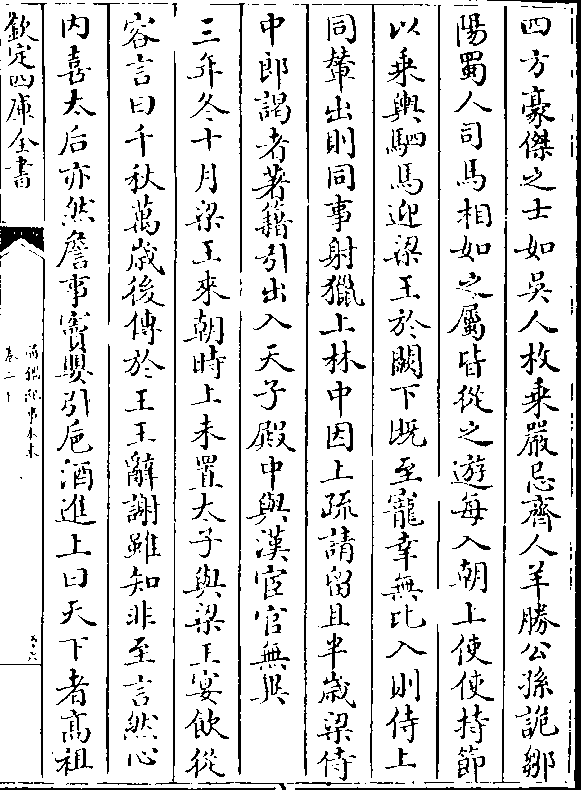 四方豪傑之士如吳人枚乘嚴忌齊人羊勝公孫詭鄒
陽蜀人司馬相如之屬皆從之遊每入朝上使使持節
以乘輿駟馬迎梁王於闕下既至寵幸無比入則侍上
同輦出則同車射獵上林中因上疏請留且半歲梁侍
中郎謁者著籍引出入天子殿中與漢宦官無異
三年冬十月梁王來朝時上未置太子與梁王宴飲從
容言曰千秋萬歲後傳於王王辭謝雖知非至言然心
内喜太后亦然詹事竇嬰引巵酒進上曰天下者高祖
欽定四庫全書